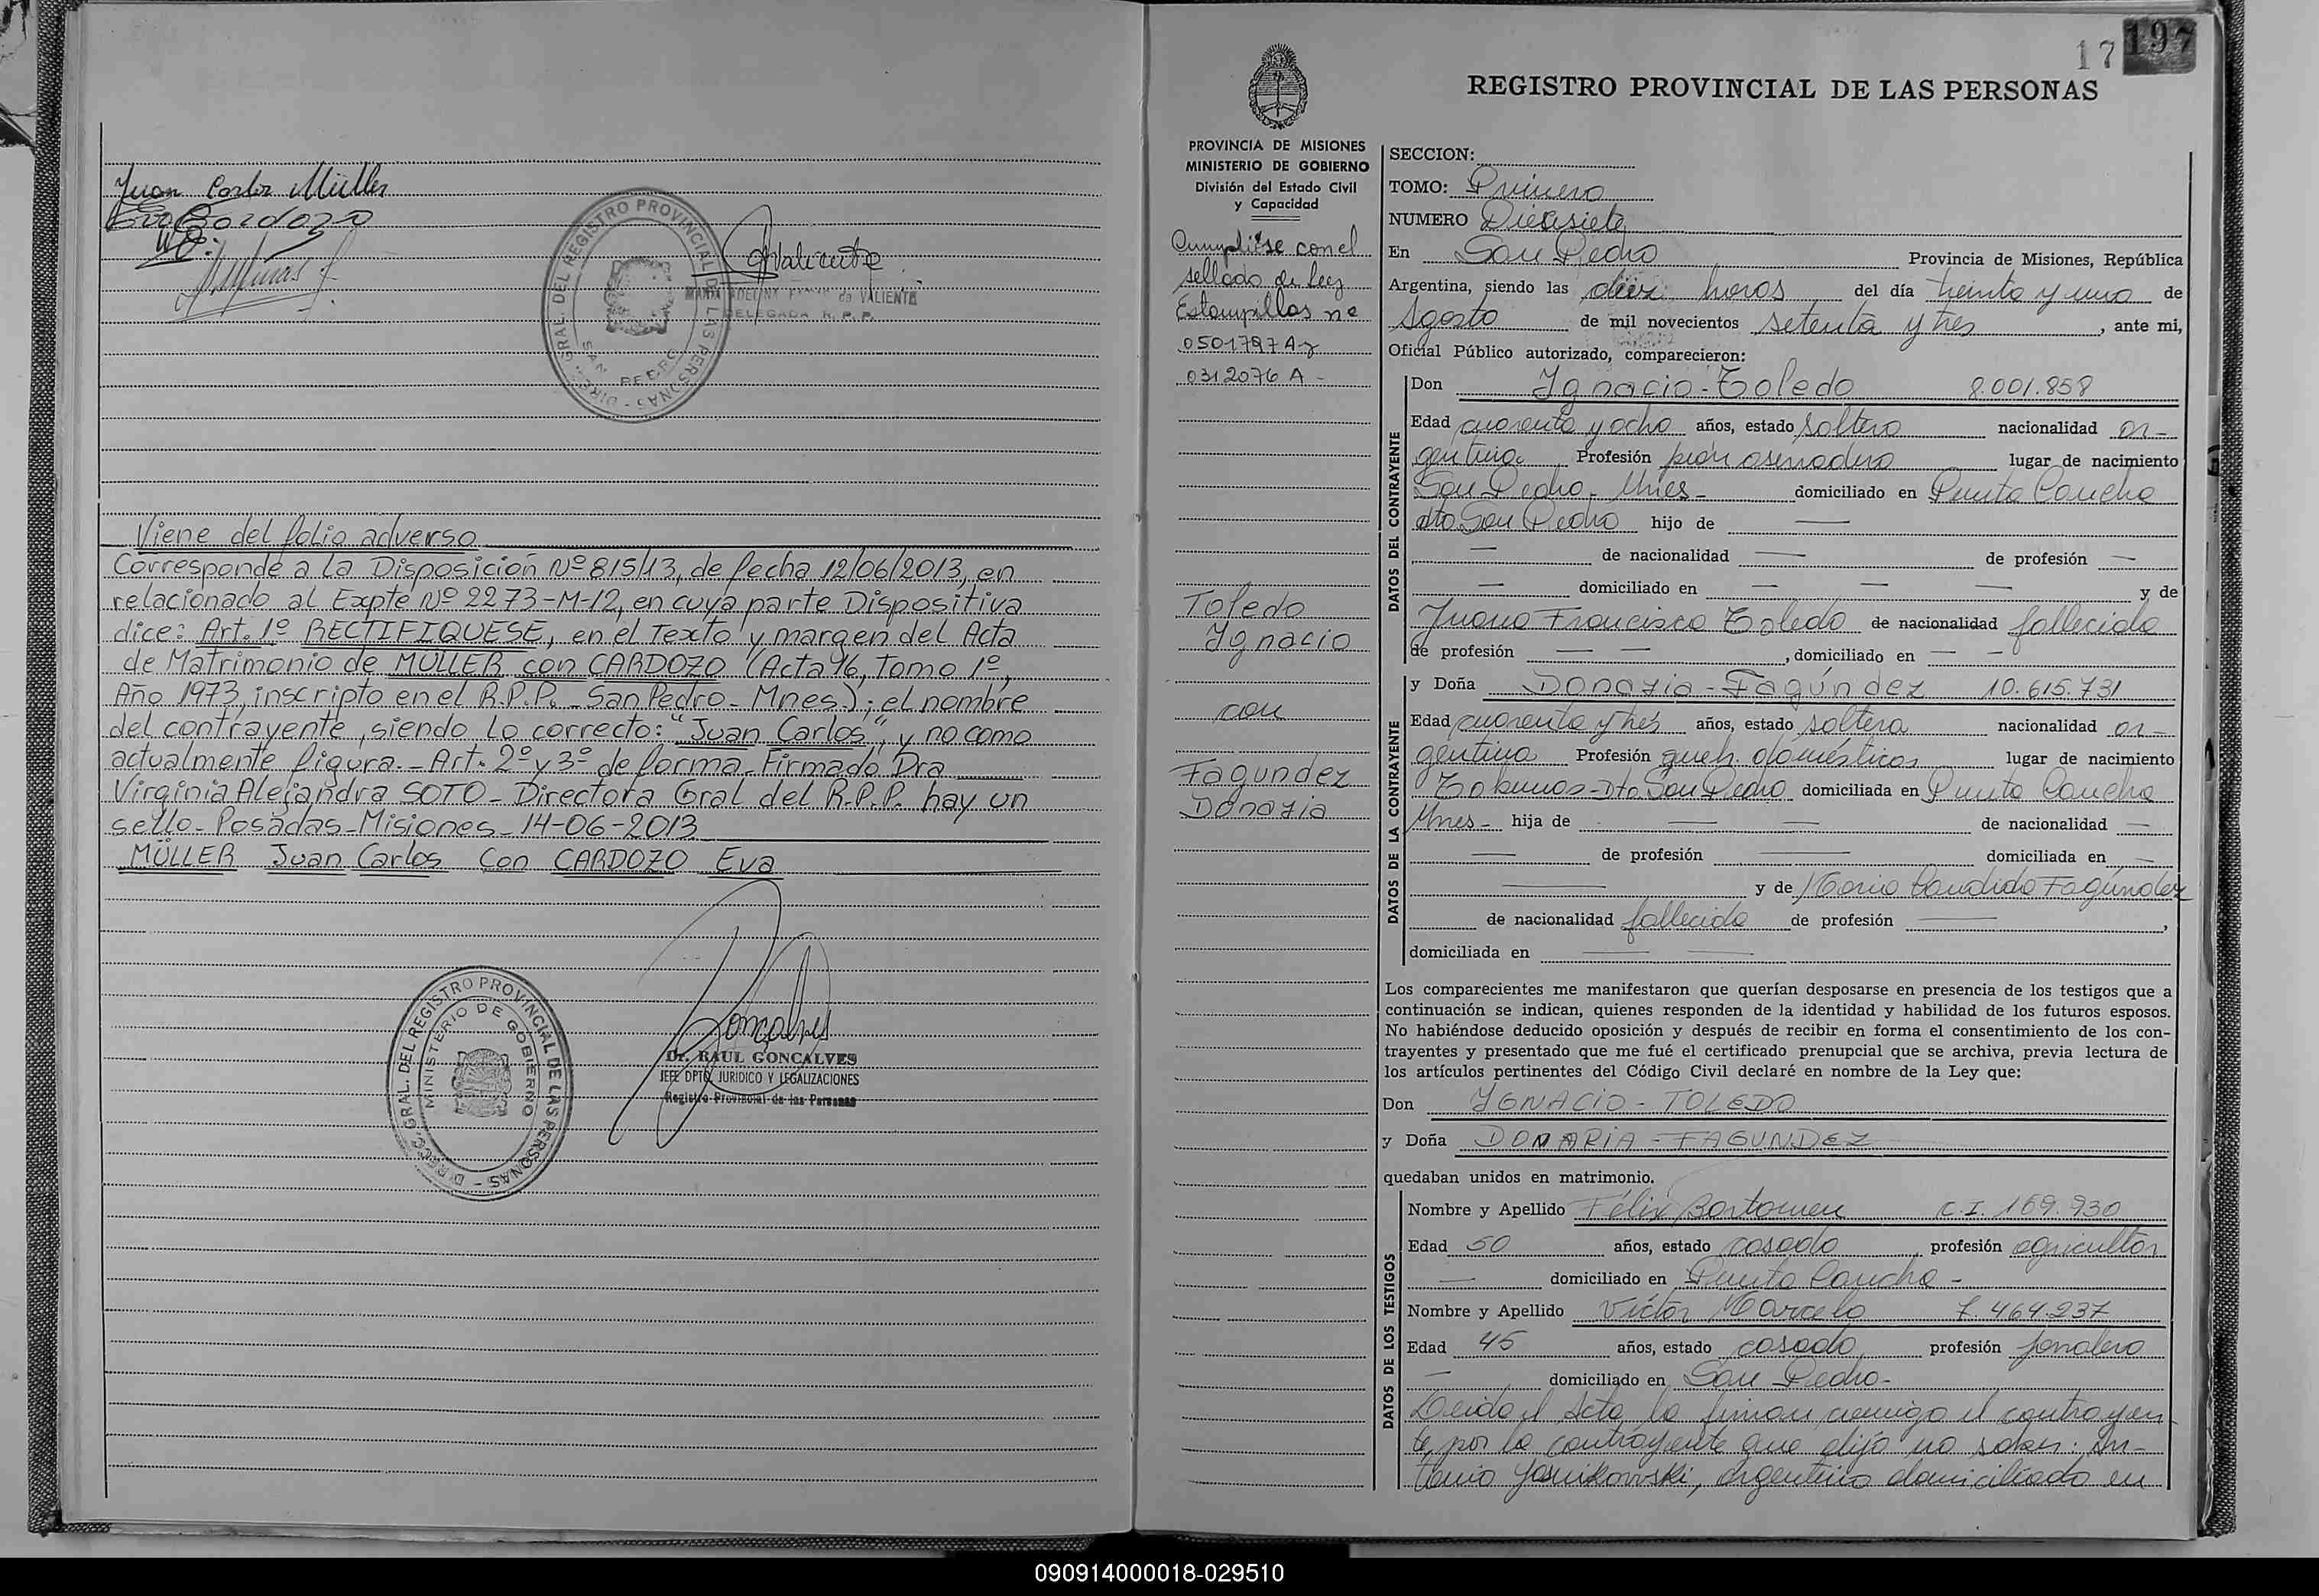 Juan Carlos Müller
Eva Cardozo
REGISTRO PROVINCIAL DE LAS PERSONAS
SAN PEDRO
de VALIENTE
DELEGADA R. P. P.
Viene del folio adverso
Corresponde a la Disposición Nº 815/13, de fecha 12/06/2013, en
relacionado al Expte Nº 2273-M-12, en cuya parte Dispositiva
dice: Art. 1º RECTIFIQUESE, en el Texto y margen del Acta
de Matrimonio de MÜLLER con CARDOZO (Acta 16, Tomo 1º,
Año 1973, inscripto en el R.P.P. - San Pedro - Mnes.); el nombre
del contrayente, siendo lo correcto: "Juan Carlos", y no como
actualmente figura. - Art. 2º y 3º de forma - Firmado Dra
Virginia Alejandra SOTO - Directora Gral del R.P.P. hay un
sello - Posadas - Misiones - 14-06-2013
MÜLLER Juan Carlos con CARDOZO Eva
DIREC. GRAL. DEL REGISTRO PROVINCIAL DE LAS PERSONAS
MINISTERIO DE GOBIERNO
Dr. RAUL GONCALVES
JEFE DPTO. JURIDICO Y LEGALIZACIONES
Registro Provincial de las Personas
17 197
REGISTRO PROVINCIAL DE LAS PERSONAS
PROVINCIA DE MISIONES
MINISTERIO DE GOBIERNO
División del Estado Civil
y Capacidad
con el
sellado de Ley
Estampillas no
0501797 A y
0312076 A -
Toledo
Ygnacio
con
Fagundez
Donaria
SECCION:
TOMO: Primero
NUMERO Diecisiete
En San Pedro Provincia de Misiones, República
Argentina, siendo las diez horas del día treinta y uno de
Agosto de mil novecientos setenta y tres, ante mi,
Oficial Público autorizado, comparecieron:
DATOS DEL CONTRAYENTE
Don Ygnacio - Toledo 8.001.858
Edad cuarenta y ocho años, estado soltero nacionalidad ar-
gentina Profesión peón aserradero lugar de nacimiento
San Pedro - Mnes - domiciliado en Punta Concha
dto. San Pedro hijo de —
— de nacionalidad — de profesión —
— domiciliado en — — — y de
Juana Francisca Toledo de nacionalidad fallecida
de profesión — —, domiciliado en — —
DATOS DE LA CONTRAYENTE
y Doña Donaria - Fagúndez 10.615.731
Edad cuarenta y tres años, estado soltera nacionalidad ar-
gentina Profesión queh. domésticos lugar de nacimiento
Tobunas - Dto San Pedro domiciliada en Punta Concha
Mnes - hija de — — de nacionalidad —
— de profesión — domiciliada en —
— y de María Candida Fagúndez
de nacionalidad fallecida de profesión —,
domiciliada en — —
Los comparecientes me manifestaron que querían desposarse en presencia de los testigos que a
continuación se indican, quienes responden de la identidad y habilidad de los futuros esposos.
No habiéndose deducido oposición y después de recibir en forma el consentimiento de los con-
trayentes y presentado que me fué el certificado prenupcial que se archiva, previa lectura de
los artículos pertinentes del Código Civil declaré en nombre de la Ley que:
Don YGNACIO - TOLEDO
y Doña DONARIA - FAGUNDEZ
quedaban unidos en matrimonio.
DATOS DE LOS TESTIGOS
Nombre y Apellido Félix C.I. 169.930
Edad 50 años, estado casado profesión agricultor
— domiciliado en Punta Concha -
Nombre y Apellido Victor Marcelo 7.464.237
Edad 45 años, estado casado profesión jornalero
— domiciliado en San Pedro -
Leida el Acta, la firman conmigo el contrayen-
te, por la contrayente que dijo no saber: An-
tonio argentino domiciliado en
090914000018-029510